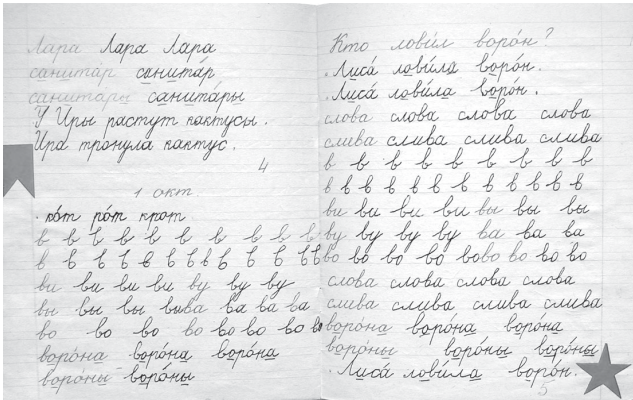 Лара Лара Лара
санита́р санита́р
санитары санита́ры
У Иры растут кактусы.
Ира тронула кактус.
4
1 окт
кот рот крот
в в в в в в в в в в
в в в в в в в в в в в в в
ви ви ви ви ву ву ву
вы вы вы выва ва ва ва
во во во во во во во во
воро́на воро́на воро́на
воро́ны воро́ны
Кто лови́л воро́н?
Лиса́ лови́ла воро́н.
Лиса́ лови́ла воро́н.
слова слова слова слова
слива слива слива слива
в в в в в в в в в в
в в в в в в в в в в в в
ви ви ви ви вы вы вы
ву ву ву ву ва ва ва
во во во во вово во во
слова слова слова слова
слива слива слива слива
ворона воро́на воро́на
воро́ны воро́ны воро́ны
Лиса́ лови́ла воро́н.
5